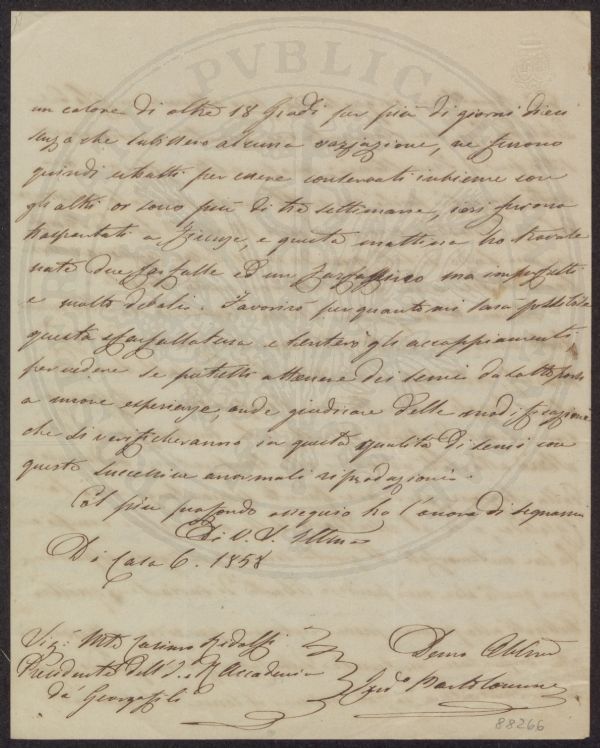 un calore di oltre 18 Gradi per più di giorni dieci
senza che subissero alcuna variazione, ne furono
quindi estratti per essere conservati insieme con
gli altri or sono più di tre settimane, jeri furono
trasportati a Firenze, e questa mattina ho trovate
nate due farfalle ed un farfallino ma imperfetti
e molto deboli. Favorirò per quanto mi sarà possibile
questa sfarfallatura e tenterò gli accoppiamenti
per vedere se potessi ottenere dei semi da sottoporsi
a nuove esperienze, onde giudicare delle modificazioni
che si verificheranno in questa qualità di semi con
queste successive anormali riproduzioni.
Col più profondo ossequio ho l'onore di segnarmi
Di V. S. Illma
Di Casa 6. 1858
Sigr. Mse Cosimo Ridolfi
Presidente dell'I. e R. Accademia
de' Georgofili
Devmo Obblmo
88266
PVBLIC